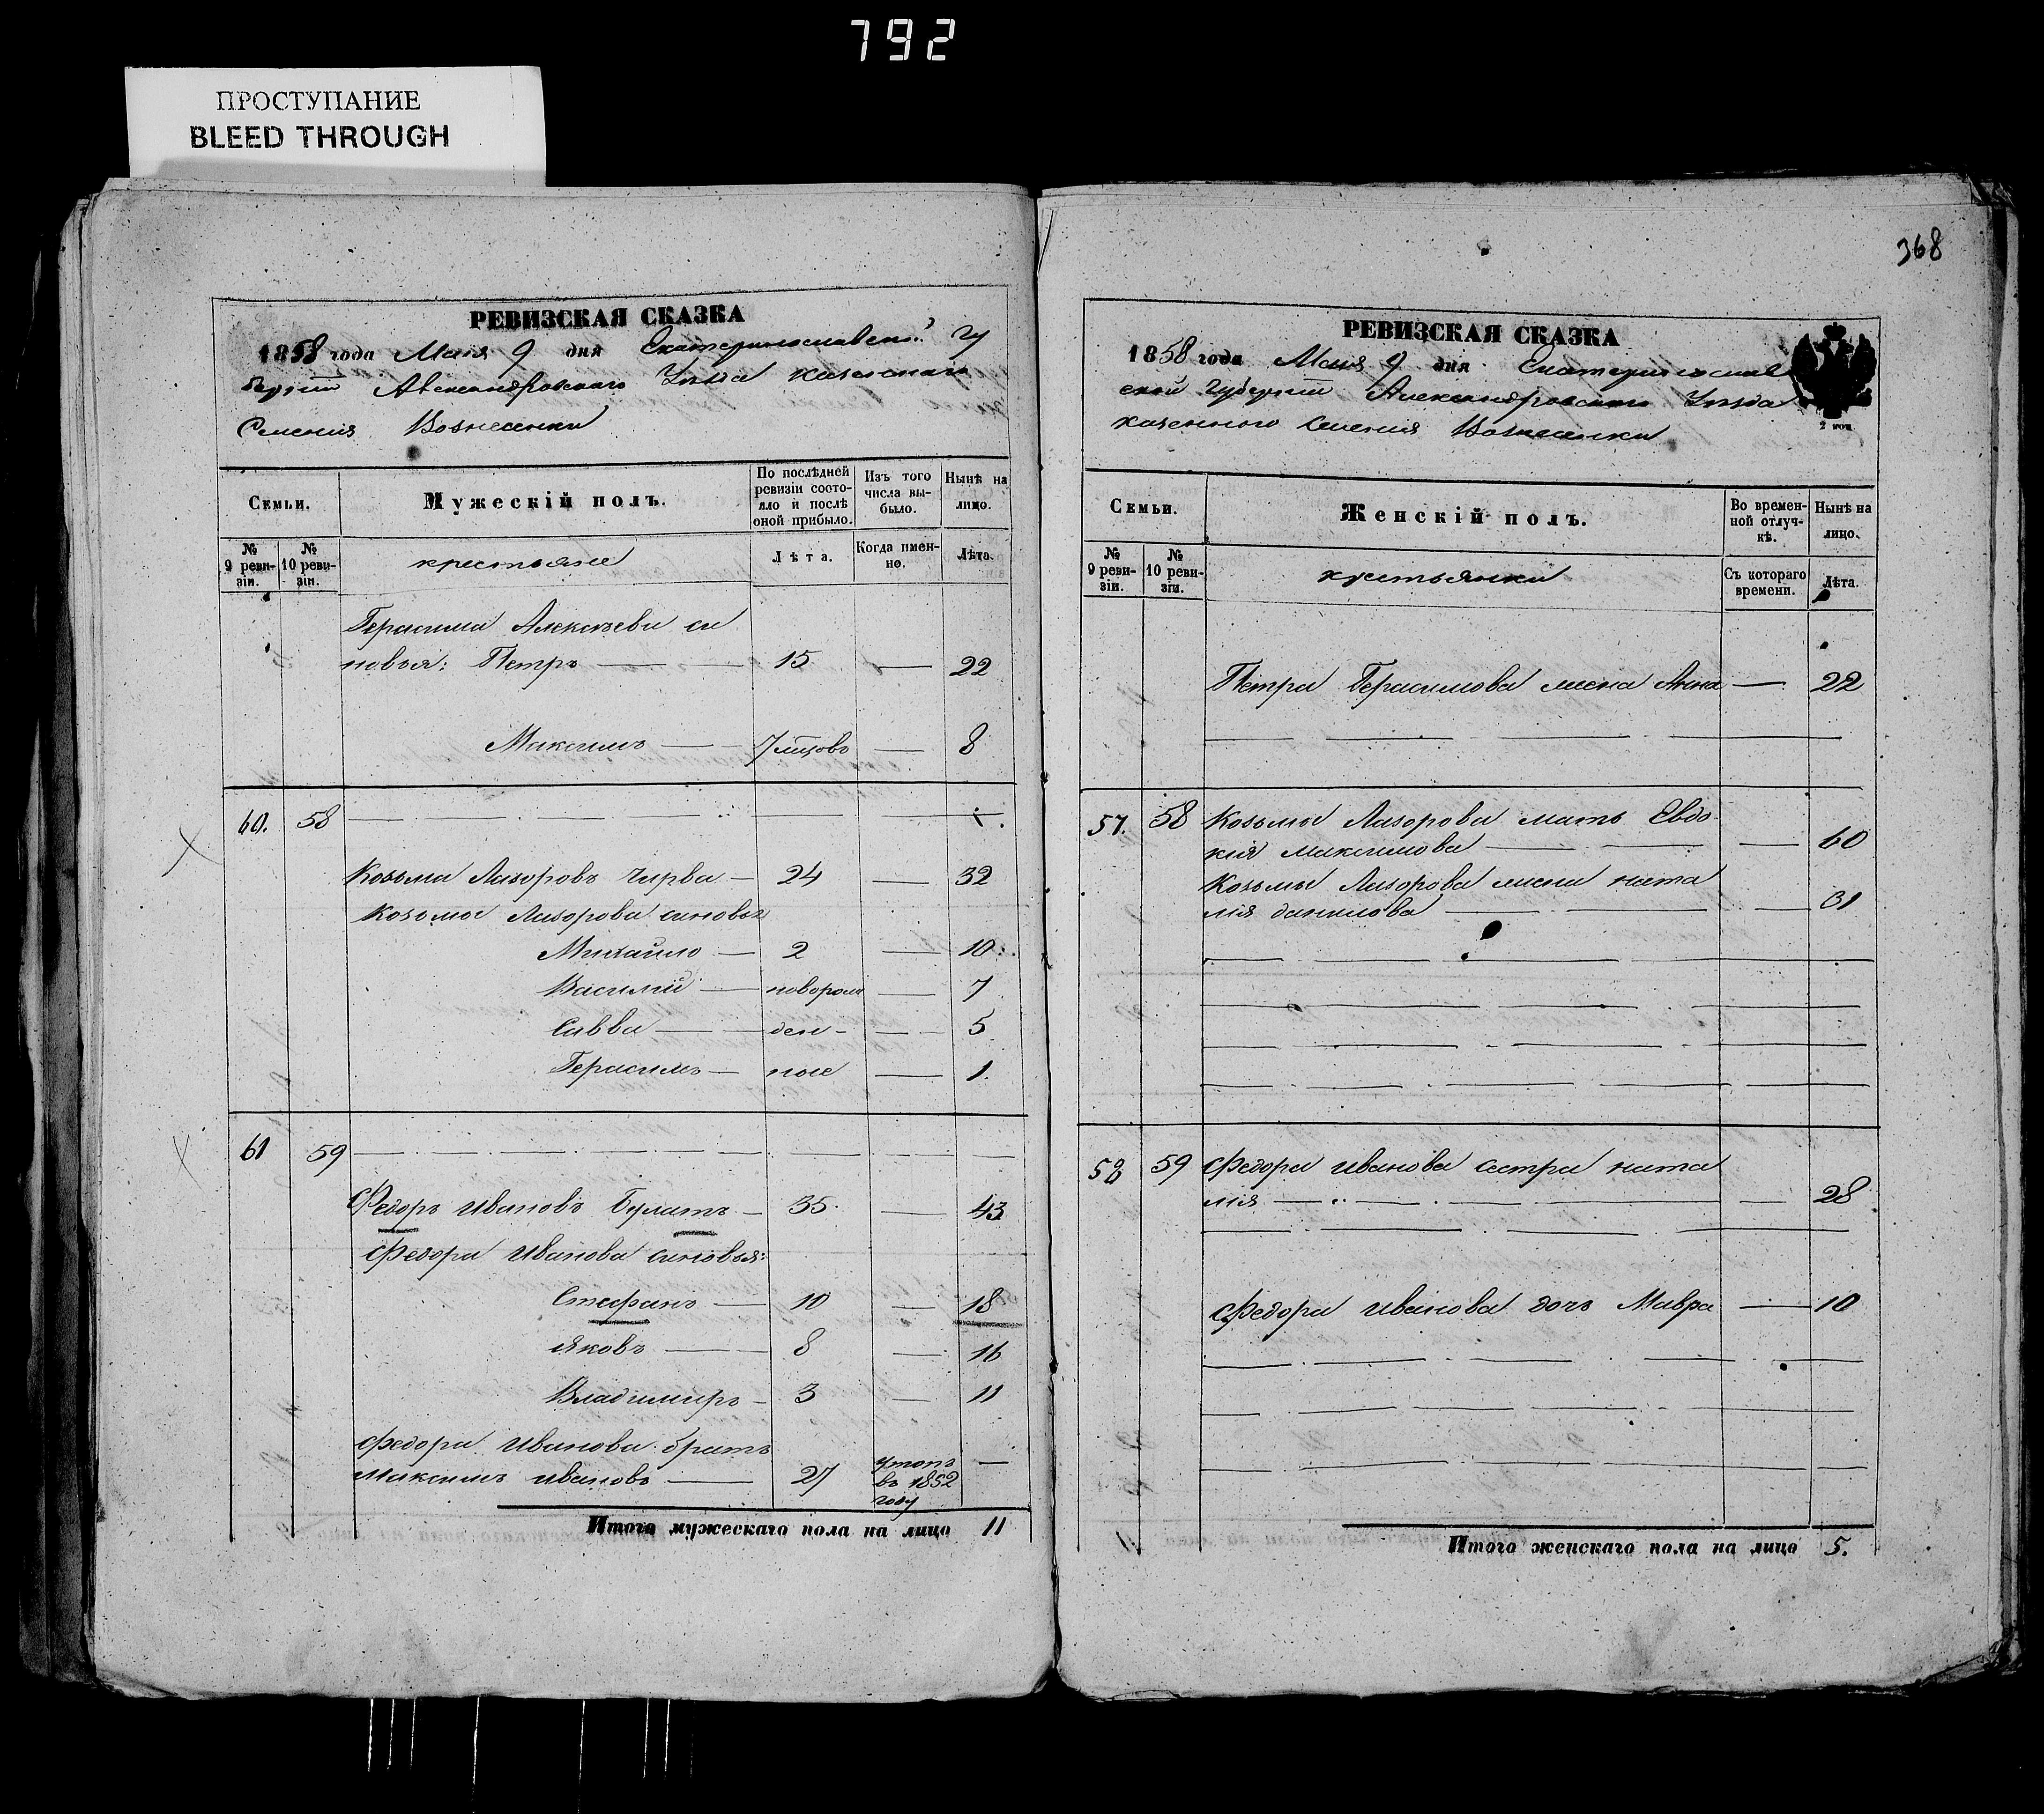 792
ПРОСТУПАНИЕ
BLEED THROUGH
РЕВИЗСКАЯ СКАЗКА
1858 года Мая 9 дня Екатеринославской Гу
берніи Александровскаго Уезда казеннаго
Селенія Вознесенки
Семьи.
Мужескій полъ.
По послѣдней ревизіи состояло и послѣ оной прибыло.
Изъ того числа выбыло.
Нынѣ на лицо.
№ 9 ревизіи.
№ 10 ревизіи.
крестьяне
Лѣта.
Когда именно.
Лѣта.
Герасима Алексѣева си
новья: Петръ — — 15 — 22
Максимъ — 7 мцовъ — 8
60. 58
Козьма Лазоровъ Чирва — 24 — 32
Козьмы Лазорова синовья
Михайло — 2 — 10.
Василий — новорож — 7
Савва — ден — 5
Герасимъ — ные — 1.
61 59
Федоръ Ивановъ Булатъ — 35. — 43
Федора Иванова синовья:
Стефанъ — 10 — 18
Яковъ — 8 — 16
Владимиръ — 3 — 11
Федора Иванова братъ
Максимъ Ивановъ — 27 утопъ въ 1852 году —
Итого мужескаго пола на лицо 11
368
РЕВИЗСКАЯ СКАЗКА
1858 года Мая 9 дня Екатеринослав
ской Губерніи Александровскаго Уезда
казенного Селенія Вознесенки
Семьи.
Женскій полъ.
Во временной отлучкѣ.
Нынѣ на лицо.
№ 9 ревизіи.
№ 10 ревизіи.
крестьянки
Съ котораго времени.
Лѣта.
Петра Герасимова жена Анна — 22
57. 58 Козьмы Лазорова мать Евдо
кия Максимова — — 60
Козьмы Лазорова жена ната
лія данилова — — 31
58 59 Федора Иванова сестра ната
лія — — 28
Федора Иванова дочь Мавра — 10
Итого женскаго пола на лицо 5.